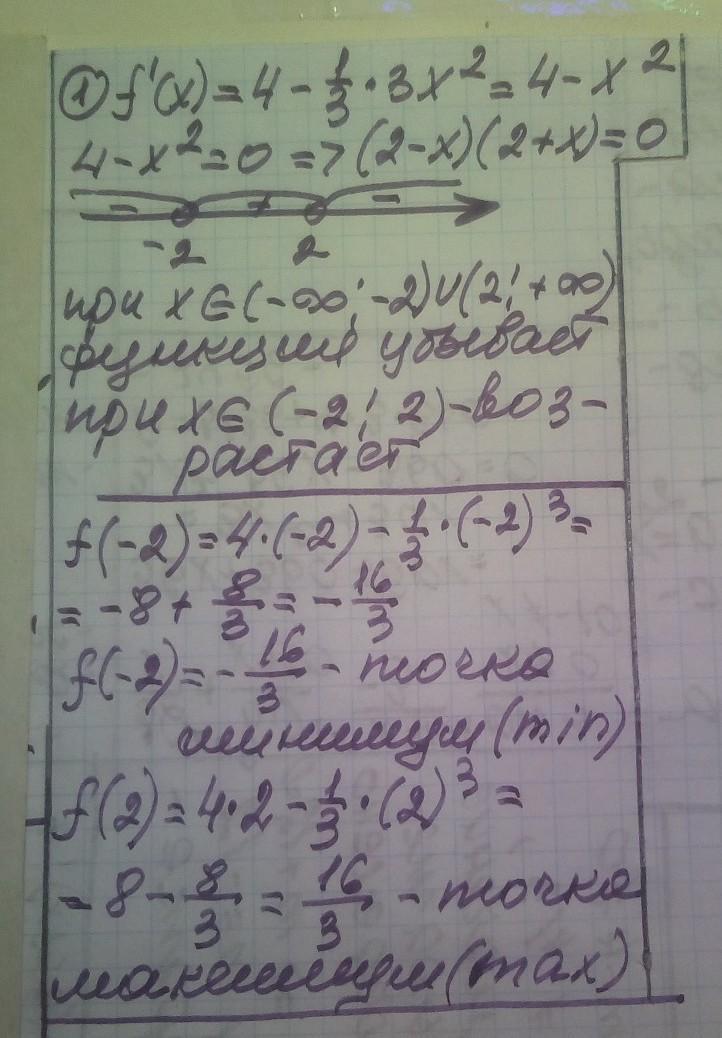 ① f'(x) = 4 - 1/3 · 3x² = 4 - x²
4 - x² = 0 => (2-x)(2+x) = 0
- + -
-2 2
при x∈(-∞; -2)∪(2; +∞)
функция убывает
при x∈(-2; 2) - воз-
растает
f(-2) = 4·(-2) - 1/3 · (-2)³ =
= -8 + 8/3 = - 16/3
f(-2) = - 16/3 - точка
минимум (min)
f(2) = 4·2 - 1/3 · (2)³ =
= 8 - 8/3 = 16/3 - точка
максимум (max)